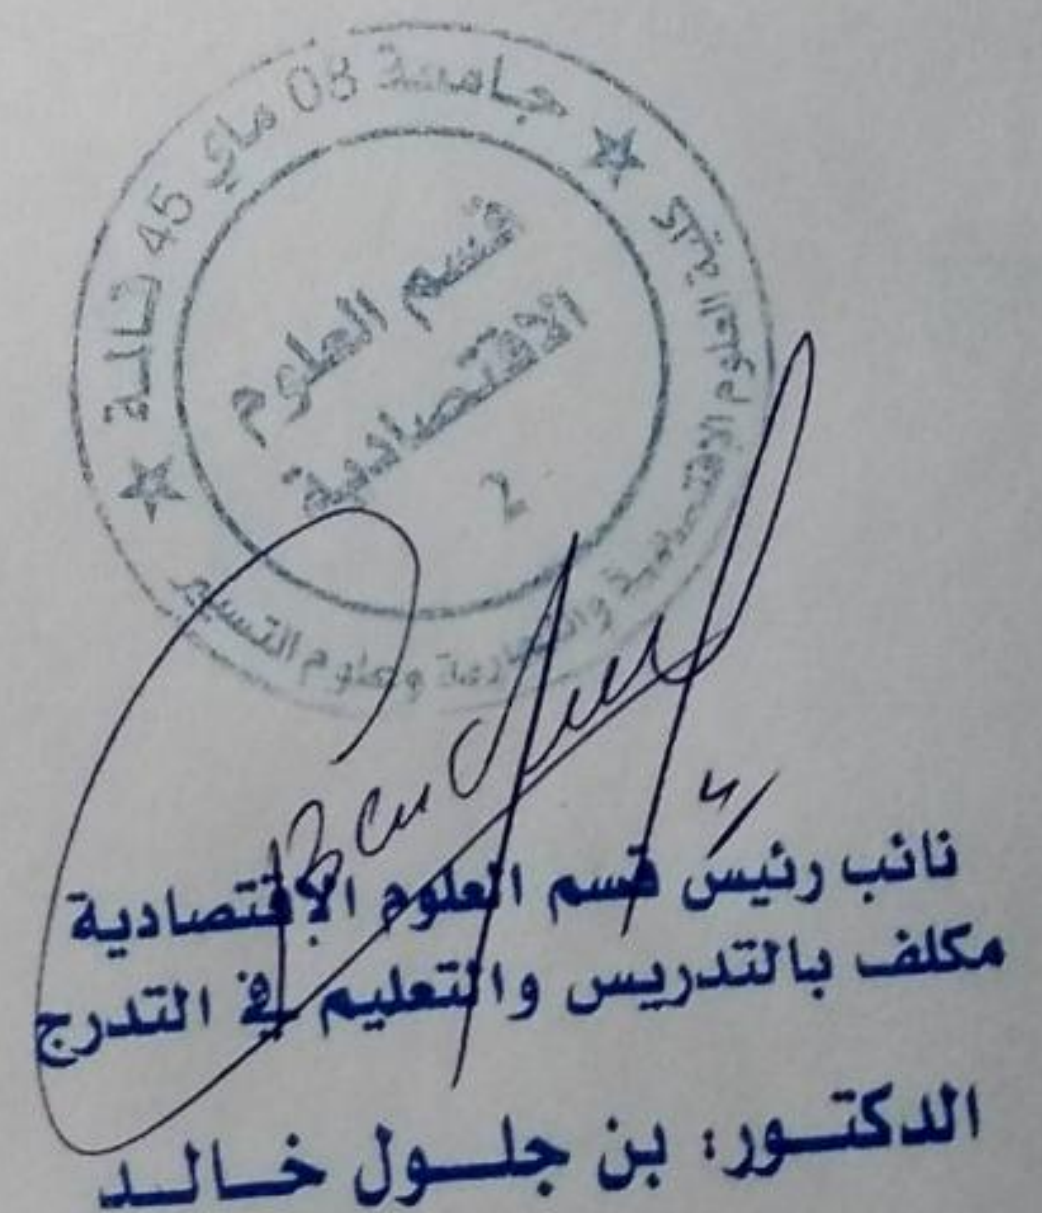 جامعة 08 ماي 45 قالمة
كلية العلوم الإقتصادية والتجارية وعلوم التسيير
قسم العلوم
الاقتصادية
2
نائب رئيس قسم العلوم الإقتصادية
مكلف بالتدريس والتعليم في التدرج
الدكتــور: بن جلــول خــالــد